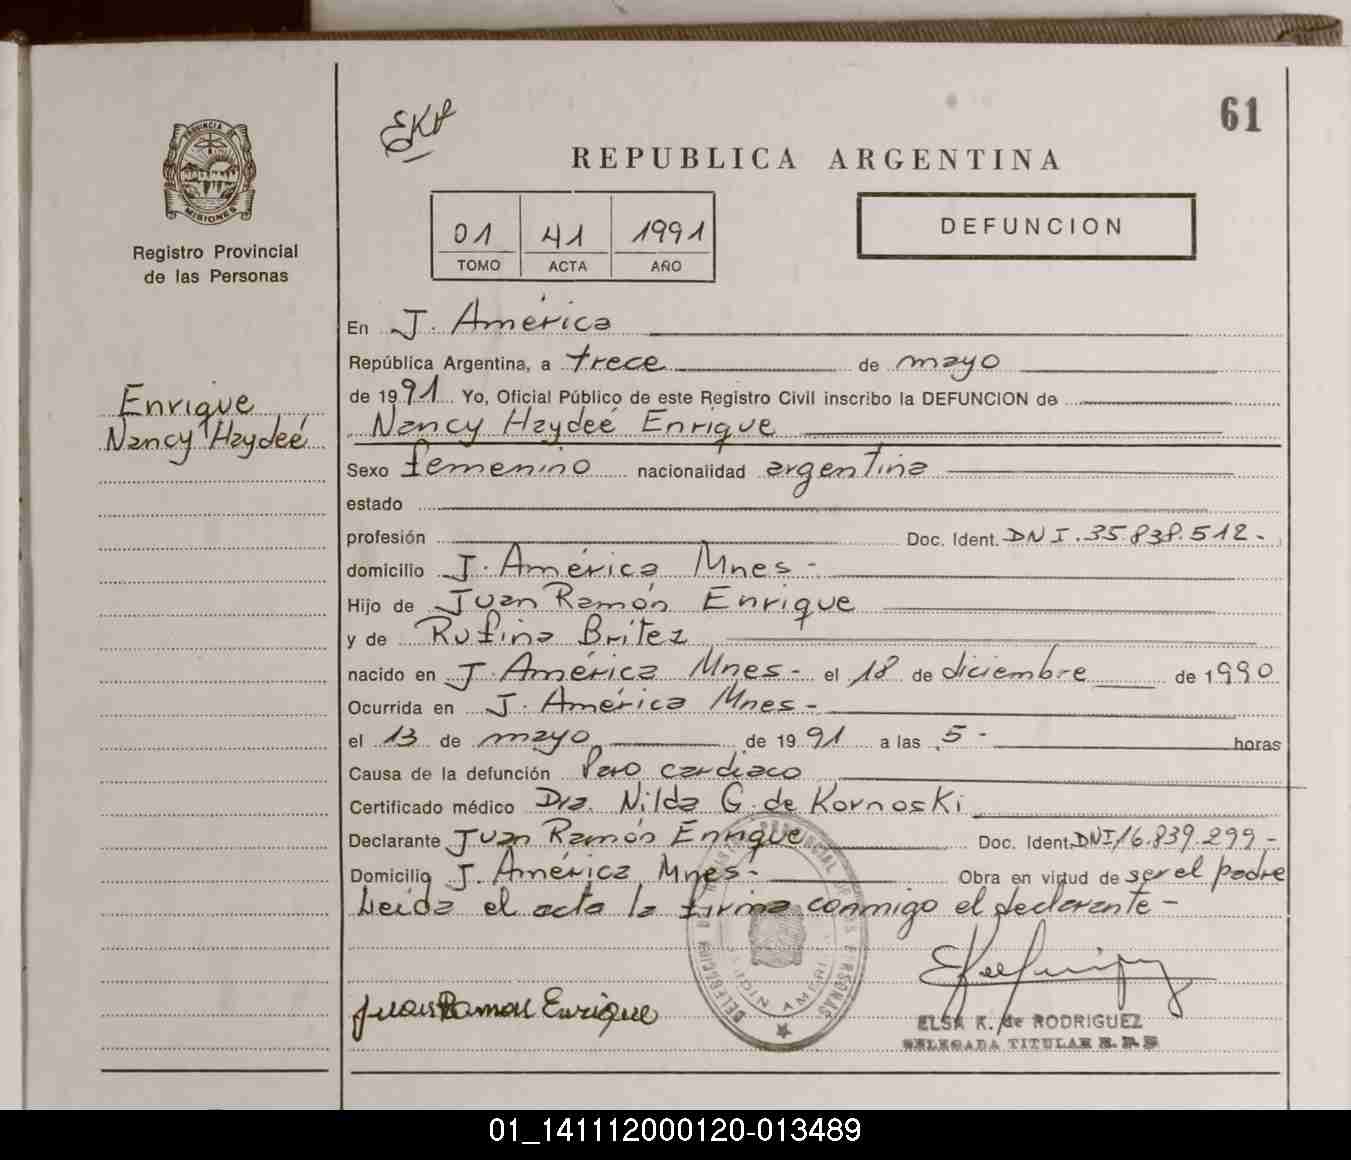 61
EKA
REPUBLICA ARGENTINA
PROVINCIA DE
MISIONES
Registro Provincial
de las Personas
01 41 1991
TOMO ACTA AÑO
DEFUNCION
En J. América
República Argentina, a trece de mayo
de 1991 Yo, Oficial Público de este Registro Civil inscribo la DEFUNCION de
Enrique
Nancy Haydeé
Nancy Haydeé Enrique
Sexo femenino nacionalidad argentina
estado
profesión Doc. Ident. DNI. 35.838.512.-
domicilio J. América Mnes-
Hijo de Juan Ramón Enrique
y de Rufina Britez
nacido en J. América Mnes- el 18 de diciembre de 1990
Ocurrida en J. América Mnes-
el 13 de mayo de 1991 a las 5- horas
Causa de la defunción Paro cardiaco
Certificado médico Dra. Nilda G. de Kornoski
Declarante Juan Ramón Enrique Doc. Ident. DNI 16.839.299-
Domicilio J. América Mnes- Obra en virtud de ser el padre
Leida el acta la firma conmigo el declarante-
Juan Ramon Enrique
ELSA K. de RODRIGUEZ
DELEGADA TITULAR R. P. P.
01_141112000120-013489